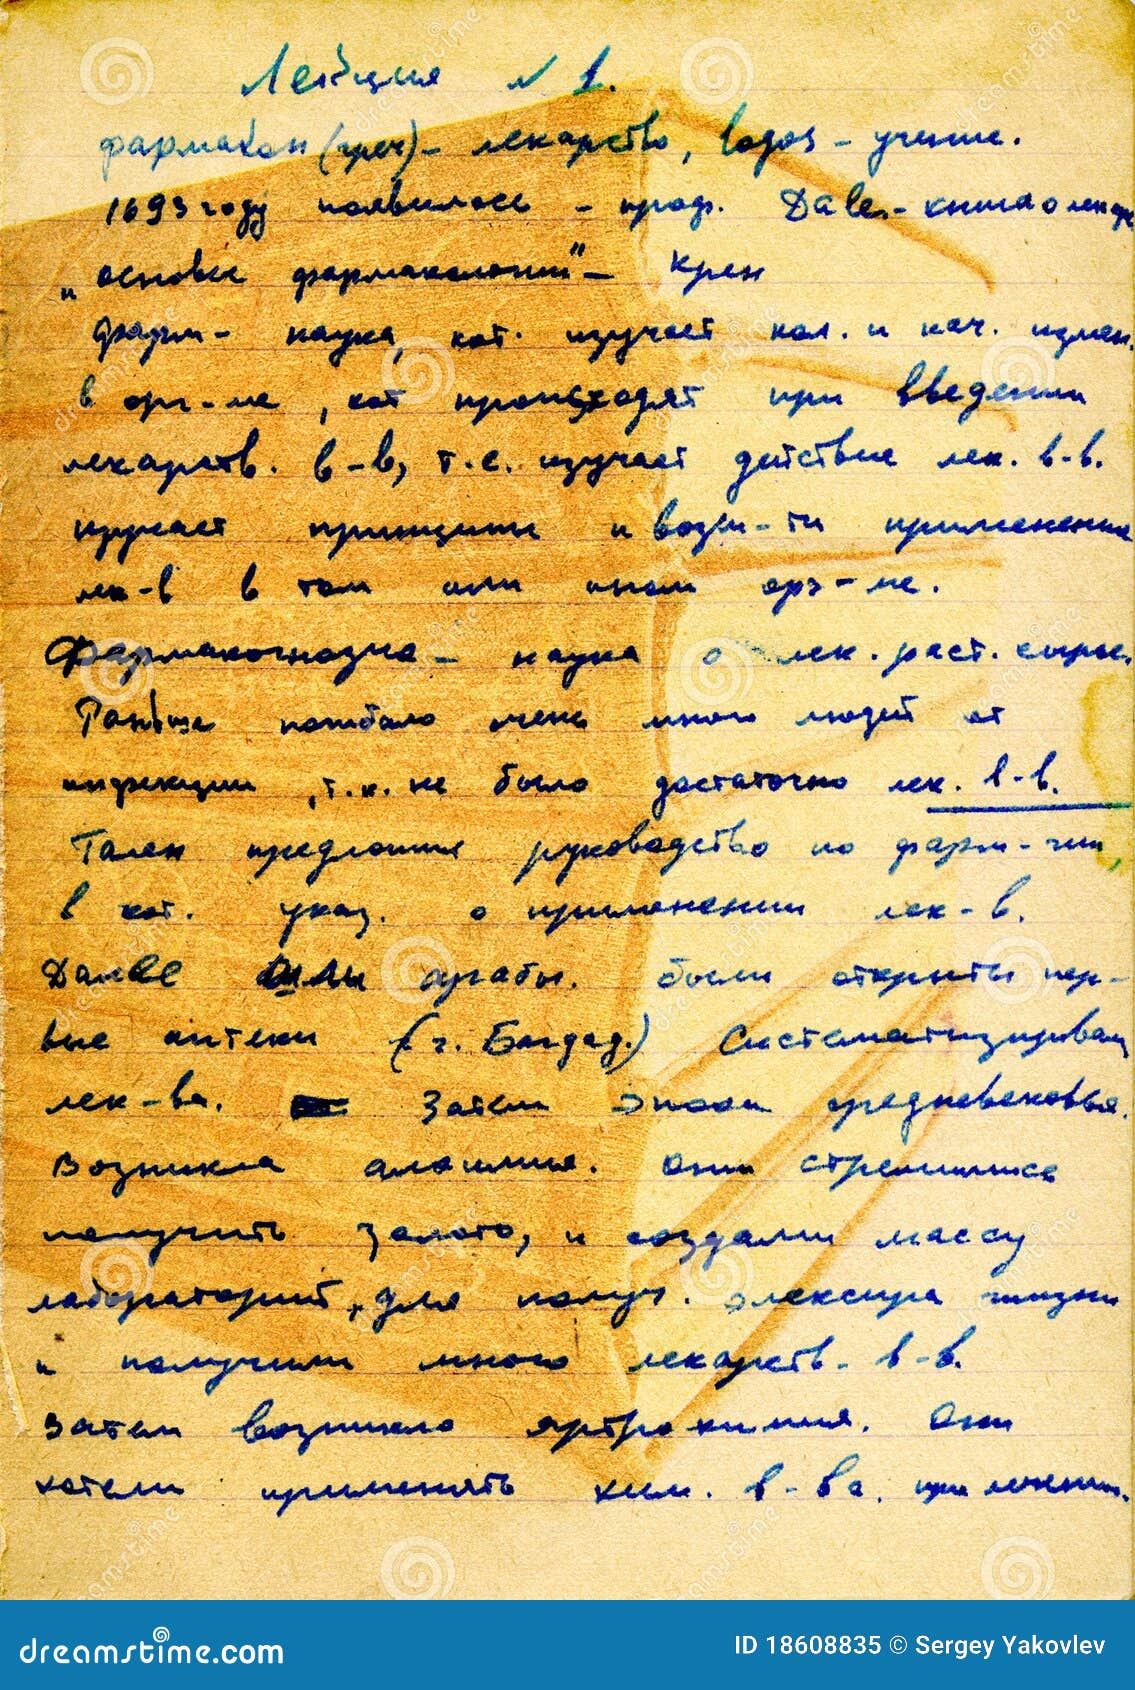 Лекция № 1.
фармакон (греч) - лекарство, logos - учение.
1693 году появилось - проф. Dale - книга о лекар
„основы фармакологии" -
фарм - наука, кот. изучает кол. и кач. измен.
в орг-ме, кот происходят при введении
лекарств. в-в, т.е. изучает действие лек. в-в.
изучает принципы и возм-ти применения
лек-в в том или ином орг-ме.
Фармакогнозия - наука о лек. раст. сырье.
Раньше погибало очень много людей от
инфекции, т.к. не было достаточно лек. в-в.
Гален предложил руководство по фарм-гии,
в кот. указ. о применении лек-в.
Далее шли арабы. были открыты пер-
вые аптеки (г. Багдад.) Систематизировали
лек-ва. Затем эпоха средневековья.
Возникла алхимия. Они стремились
получить золото, и создали массу
лабораторий, для получ. элексира жизни
и получили много лекарств. в-в.
Затем возникло ятрохимия. Они
хотели применять хим. в-ва. при лечении.
dreamstime.com
ID 18608835 © Sergey Yakovlev